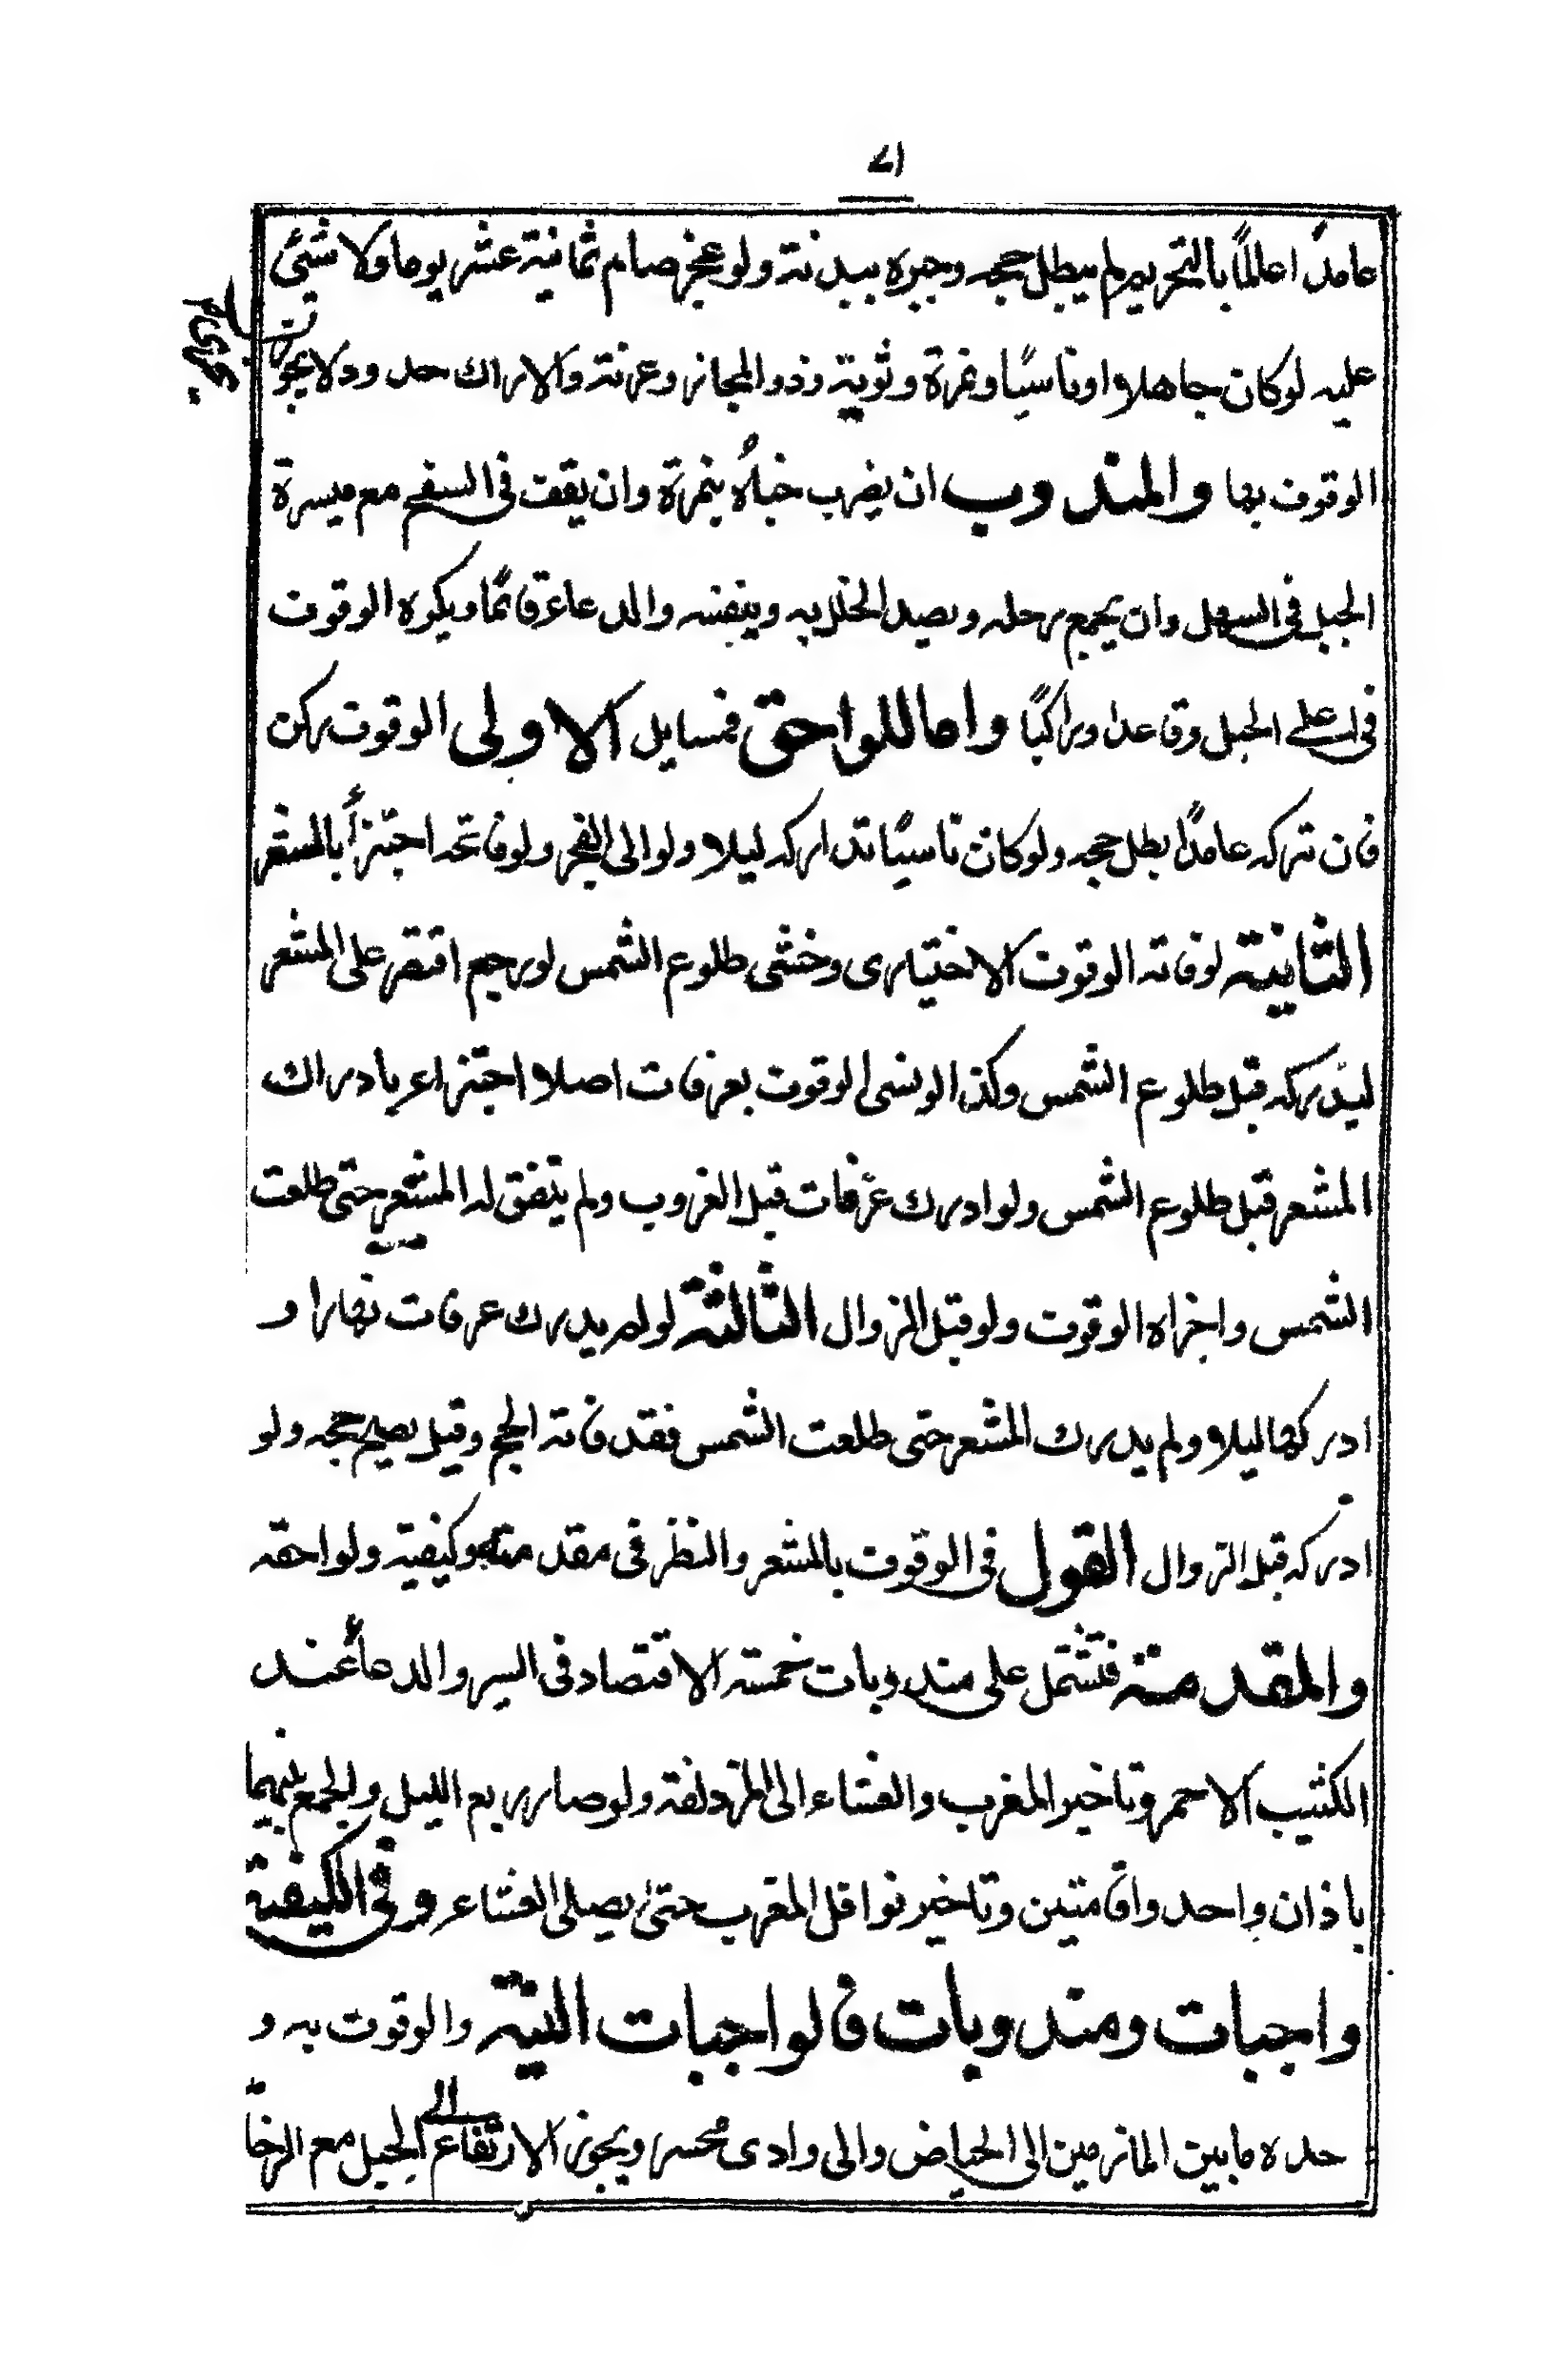 ٧١
عامداً عالماً بالتحريم لم يبطل حجه وجبره ببدنة ولو عجز صام ثمانية عشر يوما ولا شئ
عليه لو كان جاهلا او ناسيًا ونمرة وثوية وذو المجاز وعرنة والاراك حدود لا يجوز
الوقوف بها والمندوب ان يضرب خباءه بنمرة وان يقف فى السفح مع ميسرة
الجبل فى السهل وان يجمع رحله ويصد الخلل به وبنفسه والدعاء قائمًا ويكره الوقوف
فى اعلى الجبل وقاعدا وراكبًا واما اللواحق فمسايل الاولى الوقوف ركن
فان تركه عامدًا بطل حجه ولو كان ناسيًا تداركه ليلا ولو الى الفجر ولو فاته اجتزأ بالمشعر
الثانية لو فاته الوقوف الاختيارى وخشى طلوع الشمس لو رجع اقتصر على المشعر
ليدركه قبل طلوع الشمس وكذا لو نسى الوقوف بعرفات اصلا اجتزاء بادراك
المشعر قبل طلوع الشمس ولو ادرك عرفات قبل الغروب ولم يتفق له المشعر حتى طلعت
الشمس واجزاه الوقوف ولو قبل الزوال الثالثة لو لم يدرك عرفات نهارا و
ادركها ليلا ولم يدرك المشعر حتى طلعت الشمس فقد فاته الحج وقيل يصح حجه ولو
ادركه قبل الزوال القول فى الوقوف بالمشعر والنظر فى مقدمته وكيفية ولواحقه
والمقدمة فتشتمل على مندوبات خمسة الاقتصاد فى السير والدعاء عند
الكثيب الاحمر وتاخير المغرب والعشاء الى المزدلفة ولو صار ربع الليل والجمع بينهما
باذان واحد واقامتين وتاخير نوافل المغرب حتى يصلى العشاء وفى الكيفية
واجبات ومندوبات فالواجبات النية والوقوف به و
حده ما بين المازمين الى الحياض والى وادى محسر ويجوز الارتفاع الى الجبل مع الزحا